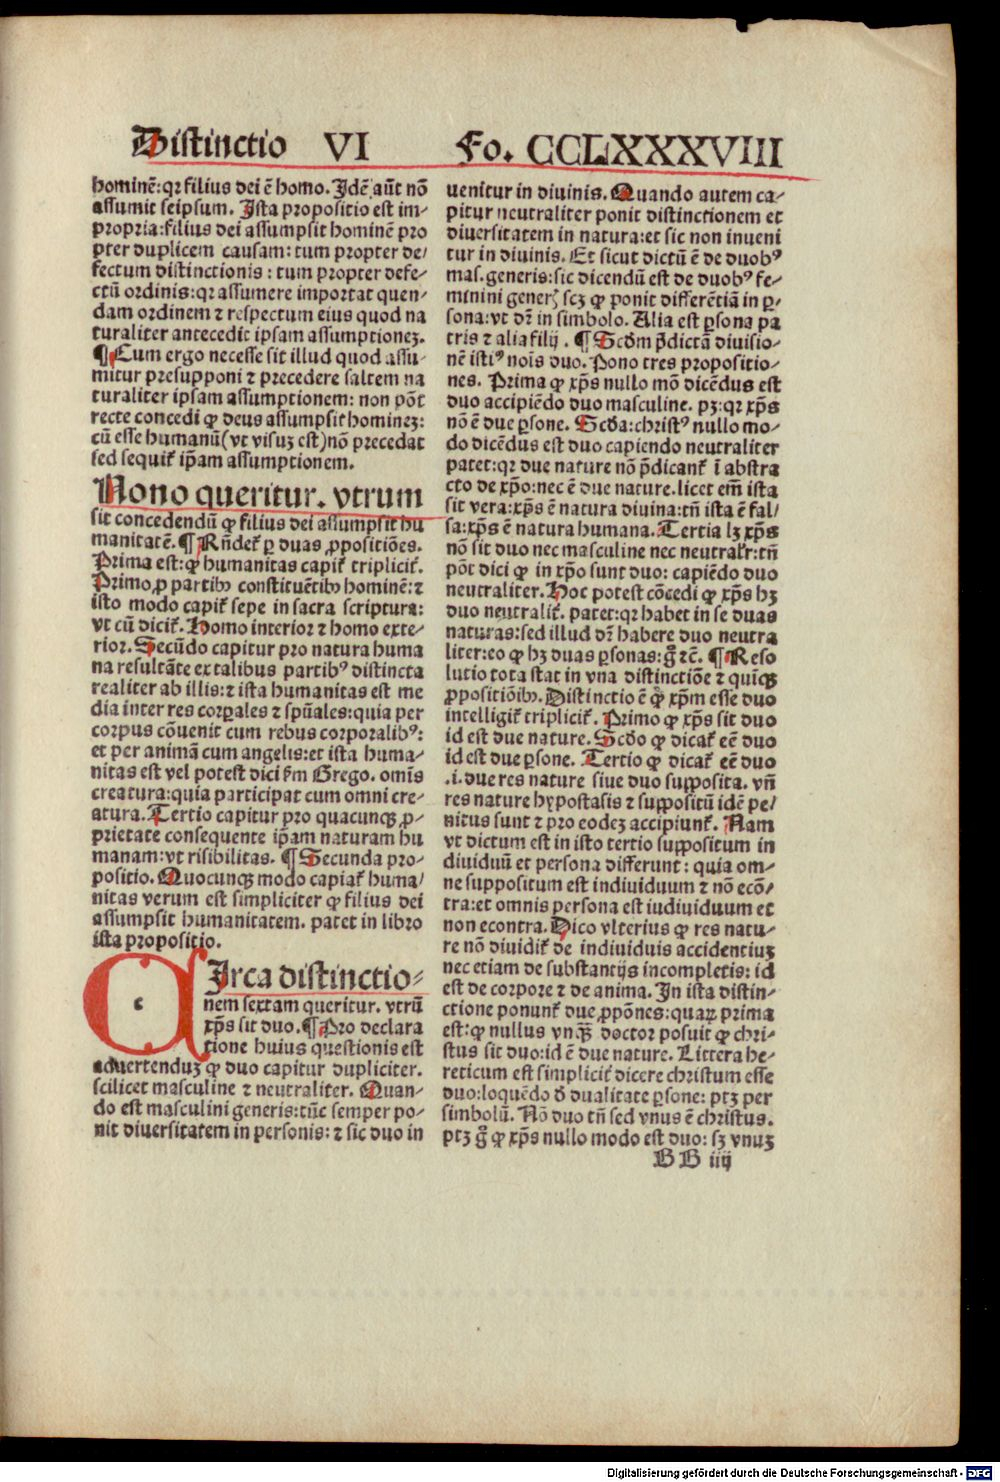 Distinctio VI Fo. CCLXXXXVIII
hominē: qꝛ filius dei ē homo. Idē aūt nō
assumit seipsum. Ista propositio est im-
propria: filius dei assumpsit hominē pro
pter duplicem causam: tum propter de-
fectum distinctionis: tum propter defe-
ctū ordinis: qꝛ assumere importat quen-
dam ordinem ⁊ respectum eius quod na
turaliter antecedit ipsam assumptionez.
¶ Cum ergo necesse sit illud quod assu-
mitur presupponi ⁊ precedere saltem na
turaliter ipsam assumptionem: non pōt
recte concedi ꝙ deus assumpsit hominez:
cū esse humanū (vt visuz est) nō precedat
sed sequit᷑ ip̄am assumptionem.
Nono queritur. vtrum
sit concedendū ꝙ filius dei assumpsit hu
manitatē. ¶ Rn̄det᷑ ꝑ duas ꝓpositiōes.
Prima est: ꝙ humanitas capit᷑ triplicit᷑.
Primo ꝓ partibꝰ constituētibꝰ hominē: ⁊
isto modo capit᷑ sepe in sacra scriptura:
vt cū dicit᷑. Homo interior ⁊ homo exte-
rior. Secūdo capitur pro natura huma
na resultāte ex talibus partibꝰ distincta
realiter ab illis: ⁊ ista humanitas est me
dia inter res corꝑales ⁊ spūales: quia per
corpus cōuenit cum rebus corporalibꝰ:
et per animā cum angelis: et ista huma-
nitas est vel potest dici ẜm Grego. omīs
creatura: quia participat cum omni cre-
atura. Tertio capitur pro quacunqꝫ ꝓ-
prietate consequente ip̄am naturam hu
manam: vt risibilitas. ¶ Secunda pro-
positio. Quocunqꝫ modo capiat᷑ huma-
nitas verum est simpliciter ꝙ filius dei
assumpsit humanitatem. patet in libro
ista propositio.
CIrca distinctio-
nem sextam queritur. vtrū
xp̄s sit duo. ¶ Pro declara
tione huius questionis est
aduertenduz ꝙ duo capitur dupliciter.
scilicet masculine ⁊ neutraliter. Quan-
do est masculini generis: tūc semper po-
nit diuersitatem in personis: ⁊ sic duo in
uenitur in diuinis. Quando autem ca-
pitur neutraliter ponit distinctionem et
diuersitatem in natura: et sic non inueni
tur in diuinis. Et sicut dictū ē de duobꝰ
mas. generis: sic dicendū est de duobꝰ fe-
minini generꝭ scz ꝙ ponit differētiā in ꝑ-
sona: vt dꝛ̄ in simbolo. Alia est ꝑsona pa
tris ⁊ alia filij. ¶ Scd̄m p̄dictā diuisio-
nē istiꝰ nois duo. Pono tres propositio-
nes. Prima ꝙ xp̄s nullo mō dicēdus est
duo accipiēdo duo masculine. pꝫ: qꝛ xp̄s
nō ē due ꝑsone. Scd̄a: christꝰ nullo mo-
do dicēdus est duo capiendo neutraliter
patet: qꝛ due nature nō p̄dicant᷑ ī abstra
cto de xp̄o: nec ē due nature. licet em̄ ista
sit vera: xp̄s ē natura diuina: tn̄ ista ē fal-
sa: xp̄s ē natura humana. Tertia lꝫ xp̄s
nō sit duo nec masculine nec neutralr᷑: tn̄
pōt dici ꝙ in xp̄o sunt duo: capiēdo duo
neutraliter. Hoc potest cōcedi ꝙ xp̄s hꝫ
duo neutralit᷑. patet: qꝛ habet in se duas
naturas: sed illud dꝛ̄ habere duo neutra
liter: eo ꝙ hꝫ duas ꝑsonas: gͦ ⁊c̄. ¶ Reso
lutio tota stat in vna distinctiōe ⁊ quīqꝫ
ꝓpositiōibꝰ. Distinctio ē ꝙ xp̄m esse duo
intelligit᷑ triplicit᷑. Primo ꝙ xp̄s sit duo
id est due nature. Scd̄o ꝙ dicat᷑ eē duo
id est due ꝑsone. Tertio ꝙ dicat᷑ eē duo
.i. due res nature siue duo supposita. vn̄
res nature hypostasis ⁊ suppositū idē pe-
nitus sunt ⁊ pro eodez accipiunt᷑. Nam
vt dictum est in isto tertio suppositum in
diuiduū et persona differunt: quia om-
ne suppositum est indiuiduum ⁊ nō ecō-
tra: et omnis persona est iudiuiduum et
non econtra. Dico vlterius ꝙ res natu-
re nō diuidit᷑ de indiuiduis accidentiuz
nec etiam de substantijs incompletis: id
est de corpore ⁊ de anima. In ista distin-
ctione ponunt᷑ due ꝓpōnes: quaꝝ prima
est: ꝙ nullus vnqꝫ̄ doctor posuit ꝙ chri-
stus sit duo: id ē due nature. Littera he-
reticum est simplicit᷑ dicere christum esse
duo: loquēdo d̄ dualitate ꝑsone: ptꝫ per
simbolū. Nō duo tn̄ sed vnus ē christus.
ptꝫ gͦ ꝙ xp̄s nullo modo est duo: sꝫ vnuz
BB iiij
Digitalisierung gefördert durch die Deutsche Forschungsgemeinschaft - DFG